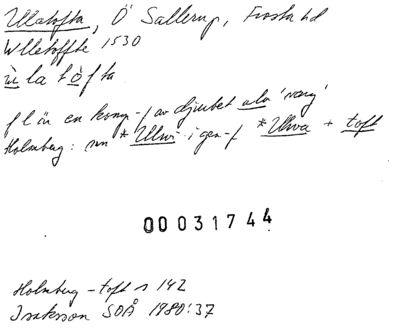 Ullatofta, Ö Sallerup, Frosta hd
Wlletoffte 1530
ù la tòfta
f l ön en komp. f av djurbet. ula 'varg'
Holmberg: mn *Ulwi i gen-f *Ulwa + toft
00031744
Holmberg - toft s 142
Isaksson SOÅ 1980:37